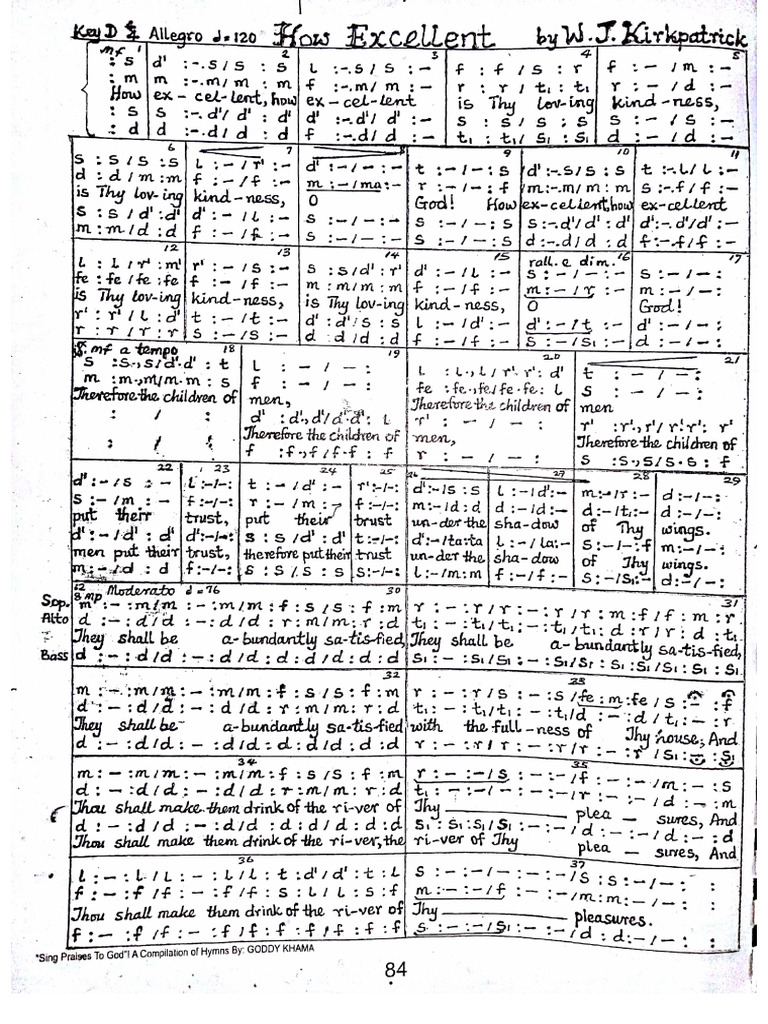 Key D 4/4 Allegro d=120 How Excellent by W. J. Kirkpatrick
mf 1 2 3 4 5
: s' d' :-.s / s : s l :-.s / s :- f : f / s : r f : - / m :-
: m m :-.m / m : m f :-.m / m :- r : r / t₁ : t₁ r : - / d :-
How ex-cel-lent, how ex-cel-lent is Thy lov-ing kind-ness,
: s s :-.d' / d' : d' d' :-.d' / d' :- s : s / s : s s : - / s :-
: d d :-.d / d : d f :-.d / d :- t₁ : t₁ / s₁ : s₁ d : - / d :-
6 7 8 9 10 11
s : s / s : s l : - / r' :- d' :- / - :- t : - / - : s d' :-.s / s : s t :-.l / l :-
d : d / m : m f : - / f :- m :- / ma :- r : - / - : f m :-.m / m : m s :-.f / f :-
is Thy lov-ing kind-ness, O God! How ex-cel-lent, how ex-cel-lent
s : s / d' : d' d' : - / l :- s :- / - :- s : - / - : s s :-.d' / d' : d' d' :-.d' / d' :-
m : m / d : d f : - / f :- s :- / - :- s : - / - : s d :-.d / d : d f :-.f / f :-
12 13 14 15 rall. e dim. 16 17
l : l / r' : m' r' : - / s :- s : s / d' : r' d' : - / l :- s :- / - :- s : - / - :
fe : fe / fe : fe f : - / f :- m : m / m : m f : - / f :- m :- / r :- m : - / - :
is Thy lov-ing kind-ness, is Thy lov-ing kind-ness, O God!
r' : r' / l : d' t : - / t :- d' : d' / s : s l : - / d' :- d' :- / t :- d' : - / - :
r : r / r : r s : - / s :- d : d / d : d f : - / f :- s :- / s₁ :- d : - / - :
mf a tempo 18 19 20 21
s : s., s / d'. d' : t l : - / - : l : l., l / r'. r' : d' t : - / - :
m : m., m / m. m : s f : - / - : fe : fe., fe / fe. fe : l s : - / - :
Therefore the children of men, Therefore the children of men
: / : d' : d'., d' / d'. d' : l r' : - / - : r' : r'., r' / r'. r' : r'
Therefore the children of men, Therefore the children of
: / : f : f., f / f. f : f s : s., s / s. s : f
22 23 24 25 26 27 28 29
d' : - / s :- l :- / - : t : - / d' :- r' :- / - : d' :- / s : s l :- / d' :- m :- / r :- d :- / - :
s :- / m :- f :- / - : r : - / m :- f :- / - : m :- / d : d l :- / d :- d :- / t₁ :- d :- / - :
put their trust, put their trust un-der the sha-dow of Thy wings.
d' :- / d' : d' d' :- / - : s : s / d' : d' t :- / - : d' :- / ta : ta l :- / la :- s :- / - : f m :- / - :
men put their trust, therefore put their trust un-der the sha-dow of Thy wings.
m :- / d : d f :- / - : s : s / s : s s :- / - : l :- / m : m f :- / f :- s :- / s₁ :- d :- / - :
12/8 mp Moderato d=76 30 31
Sop. m : - : m / m : - : m / m : f : s / s : f : m r : - : r / r : - : r / r : m : f / f : m : r
Alto d : - : d / d : - : d / d : r : m / m : r : d t₁ : - : t₁ / t₁ : - : t₁ / t₁ : d : r / r : d : t₁
They shall be a-bundantly sa-tis-fied, They shall be a-bundantly sa-tis-fied,
Bass d : - : d / d : - : d / d : d : d / d : d : d s₁ : - : s₁ / s₁ : - : s₁ / s₁ : s₁ : s₁ / s₁ : s₁ : s₁
32 33
m : - : m / m : - : m / m : f : s / s : f : m r : - : r / s : - : s / fe : m : fe / s : - : f
d : - : d / d : - : d / d : r : m / m : r : d t₁ : - : t₁ / t₁ : - : t₁ / d : - : d / t₁ : - : r
They shall be a-bundantly sa-tis-fied with the full-ness of Thy house, And
d : - : d / d : - : d / d : d : d / d : d : d r : - : r / r : - : r / r : - : r / s₁ : - : s₁
34 35
m : - : m / m : - : m / m : f : s / s : f : m r : - : - / s : - : - / f : - : - / m : - : s
d : - : d / d : - : d / d : r : m / m : r : d t₁ : - : - / - : - : - / r : - : - / d : - : m
Thou shall make them drink of the ri-ver of Thy plea - sures, And
d : - : d / d : - : d / d : d : d / d : d : d s₁ : s₁ : s₁ / s₁ : - : - / d : - : - / d : - : d
Thou shall make them drink of the ri-ver, the ri-ver of Thy plea - sures, And
36 37
l : - : l / l : - : l / l : t : d' / d' : t : l s : - : - / - : - : - / s : s : - / - : :
f : - : f / f : - : f / f : s : l / l : s : f m : - : - / f : - : - / m : m : - / - : :
Thou shall make them drink of the ri-ver of Thy pleasures.
f : - : f / f : - : f / f : f : f / f : f : f s : - : - / s₁ : - : - / d : d : - / - : :
"Sing Praises To God"! A Compilation of Hymns By: GODDY KHAMA
84